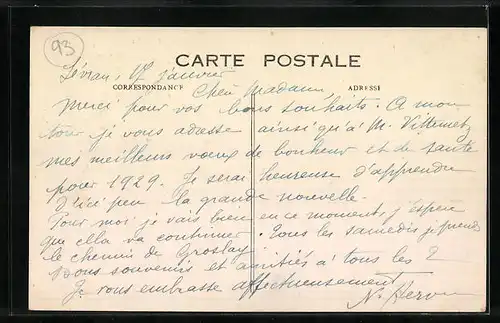 93
CARTE POSTALE
CORRESPONDANCE
ADRESSE
Sévran, 17 janvier
Cher Madame,
Merci pour vos bons souhaits. A mon
tour je vous adresse ainsi qu'à M.
mes meilleurs vœux de bonheur et de santé
pour 1929. Je serai heureuse d'apprendre
d'ici peu la grande nouvelle.
Pour moi je vais bien en ce moment, j'espère
que cela va continuer. Tous les samedis je prends
le chemin de Groslay
Bons souvenirs et amitiés à tous les 2
Je vous embrasse affectueusement